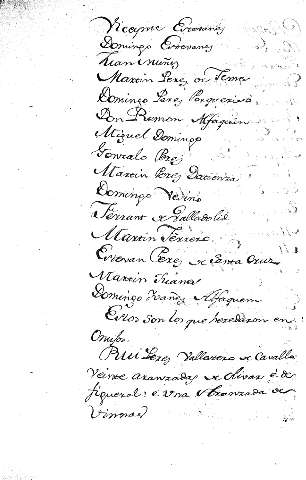 Viceynte Errovanes
Domingo Esteuanes
Iuan Nuñes
Martin Peres on Teme
Domingo Peres Porquerizo
Don Remon Alfaquin
Miguel Domingo
Gonzalo Perez
Martin Peres Dacienza
Domingo Vezino
Ferrant de Valladolid
Martin Ferrero
Estevan Perez de Santa Cruz
Martin Iuanes
Domingo Yvañes Alfaquem
Estos son los que heredaron en
Rui Perez Vallastero de Cavallo
veinte aranzadas de olivar é de
figueral: é una Aranzada de
vinnas